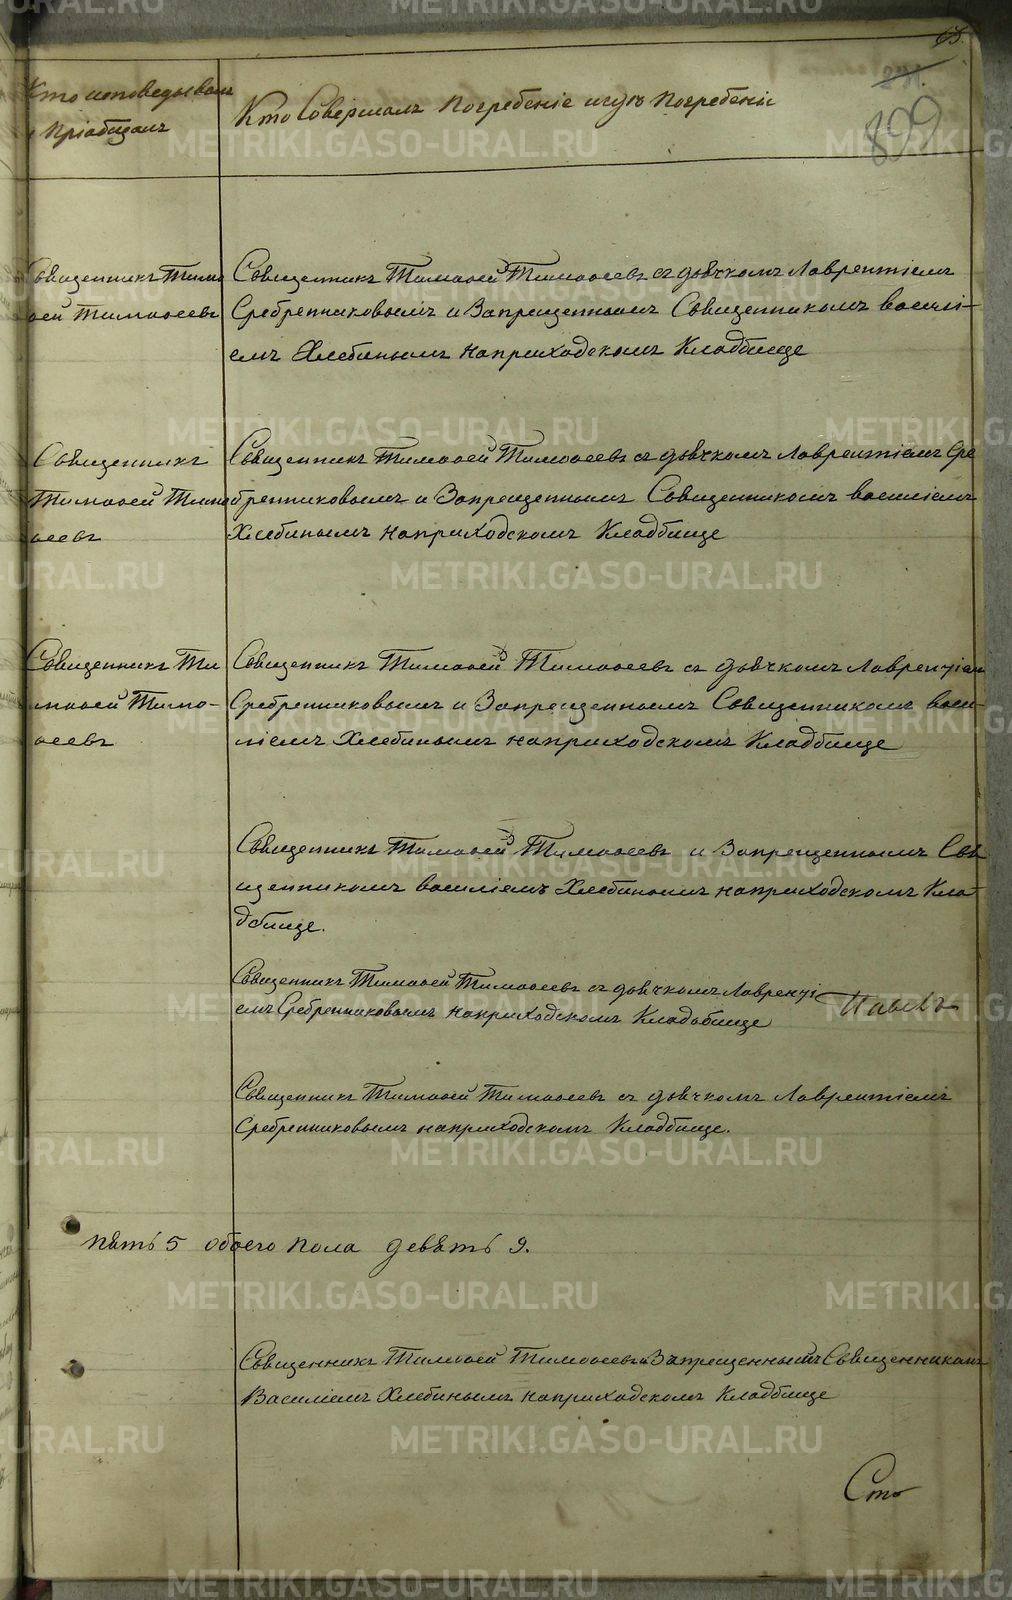 65.
899
Кто исповедывалъ
и пріобщалъ
Кто Совершалъ погребеніе и гдѣ погребены
Священникъ Тимо
ѳей Тимоѳеевъ
Священникъ Тимоѳей Тимоѳеевъ съ дьячкомъ Лаврентіемъ
Сребренниковымъ и Запрещеннымъ Священникомъ василі-
емъ Хлебинымъ на приходскомъ Кладбище
Священникъ
Тимоѳей Тимо
ѳеевъ
Священникъ Тимоѳей Тимоѳеевъ съ дьячкомъ Лаврентіемъ Сре
бренниковымъ и Запрещеннымъ Священникомъ василіемъ
Хлебинымъ на приходскомъ Кладбище
Священникъ Ти
моѳей Тимо-
ѳеевъ
Священникъ Тимоѳей Тимоѳеевъ съ дьячкомъ Лаврентіем
Сребренниковымъ и Запрещеннымъ Священникомъ васи-
ліемъ Хлебинымъ на приходскомъ Кладбище
Священникъ Тимоѳей Тимоѳеевъ и Запрещеннымъ Свя
щенникомъ василіемъ Хлебинымъ на приходскомъ Кла
дбище.
Священникъ Тимоѳей Тимоѳеевъ съ дьячкомъ Лавренті
емъ Сребренниковымъ на приходскомъ Кладбище
Павелъ
Священникъ Тимоѳей Тимоѳеевъ съ дьячкомъ Лаврентіемъ
Сребренниковымъ на приходскомъ Кладбище.
пять 5 обоего пола девять 9.
Священникъ Тимоѳей Тимоѳеевъ и Запрещеннымъ Священникомъ
Василіемъ Хлебинымъ на приходскомъ Кладбище
Сто
METRIKI.GASO-URAL.RU